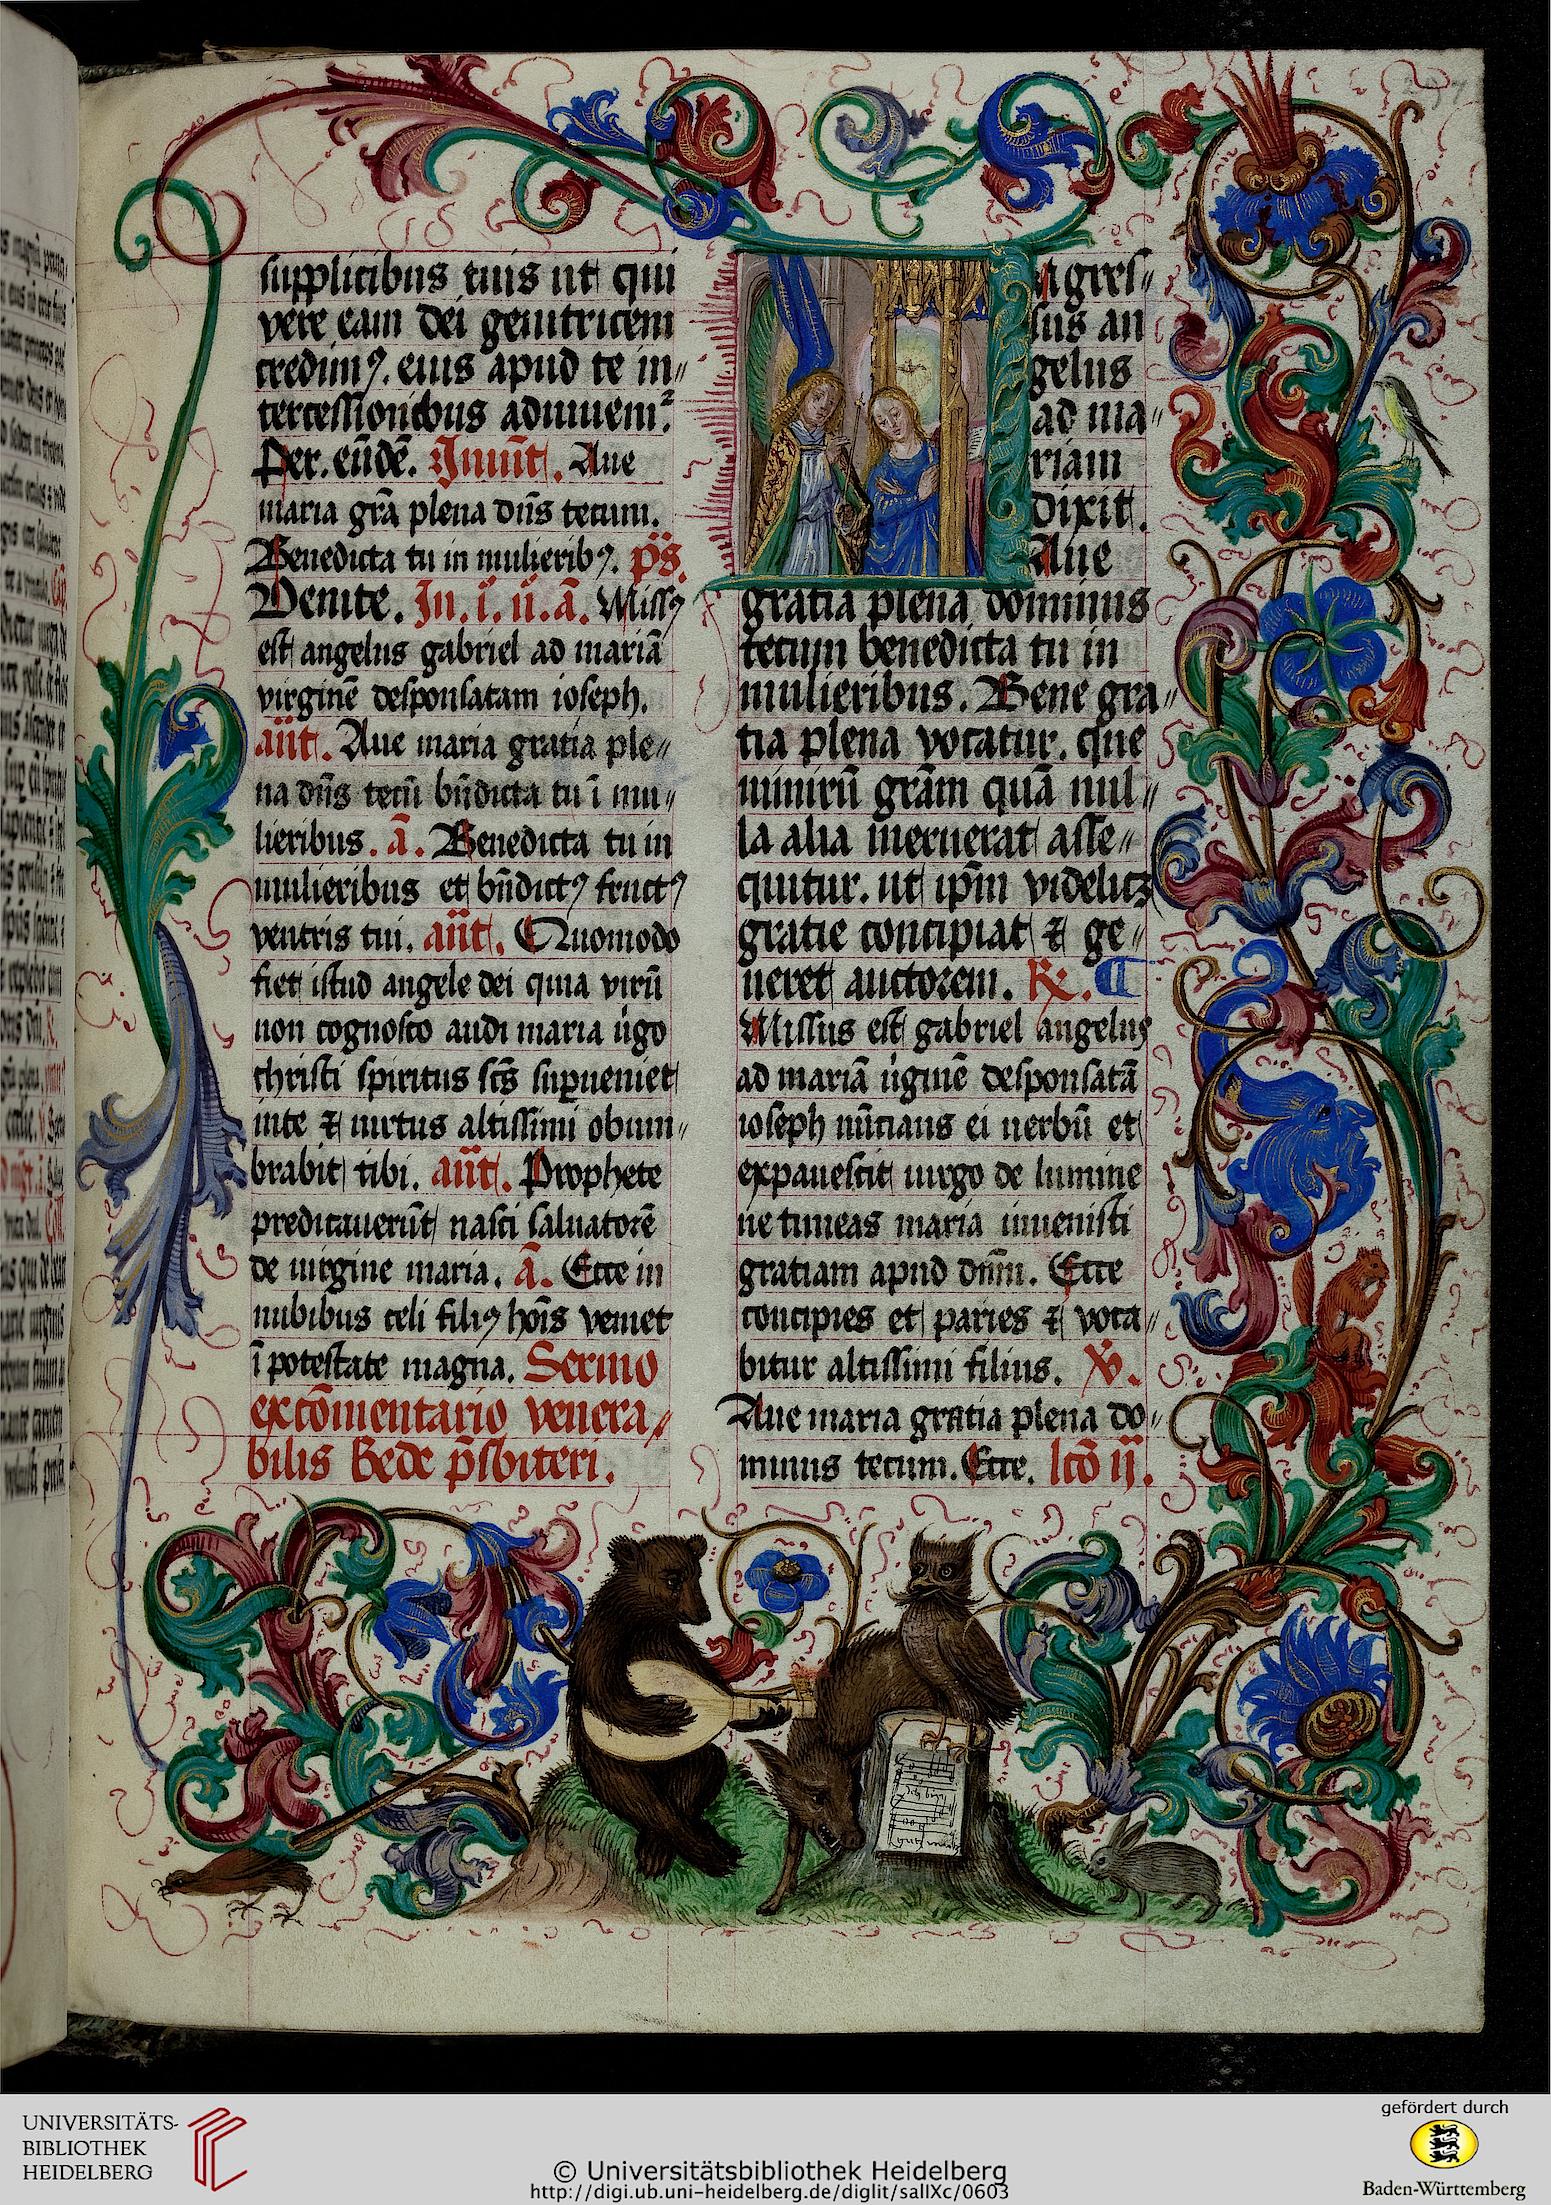 supplicibus tuis ut qui
vere eam dei genitricem
credimꝰ. eius apud te in⸗
tercessionibus adiuuem̃.
Per. eūdē. Inuit̃. Aue
maria grã plena dñs tecum.
Benedicta tu in mulieribꝰ. p̃s.
Venite. In. i. ñ. ã. Missꝰ
est angelus gabriel ad mariã
virginē desponsatam ioseph.
añt. Aue maria gratia ple⸗
na dñs tecũ bñdicta tu ĩ mu⸗
lieribus. ã. Benedicta tu in
mulieribus et bñdictꝰ fructꝰ
ventris tui. añt. Quomodo
fiet istud angele dei quia virũ
non cognosco audi maria ũgo
christi spiritus scs̃ supueniet
inte ⁊ uirtus altissimi obum⸗
brabit tibi. añt. Prophete
predicauerũt nasci saluatorē
de uirgine maria. ã. Ecce in
nubibus celi filiꝰ hoĩs veniet
ĩ potestate magna. Sermo
ex cõmentario venera⸗
bilis Bede p̃sbiteri.
Ingres⸗
sus an
gelus
ad ma⸗
riam
dixit.
Aue
gratia plena dominus
tecum benedicta tu in
mulieribus. Bene gra⸗
tia plena vocatur. que
nimirũ grãm quã nul⸗
la alia meruerat asse⸗
quitur. ut ip̃m videlicꝫ
gratie concipiat ⁊ ge⸗
neret auctorem. R̃.
Missus est gabriel angelus
ad mariã ũginē desponsatã
ioseph nũcians ei uerbũ et
expauescit uirgo de lumine
ne timeas maria inuenisti
gratiam apud dñm. Ecce
concipies et paries ⁊ voca⸗
bitur altissimi filius. V̇.
Aue maria gratia plena do⸗
minus tecum. Ecce. lcõ ij.
UNIVERSITÄTS-
BIBLIOTHEK
HEIDELBERG
© Universitätsbibliothek Heidelberg
http://digi.ub.uni-heidelberg.de/diglit/salIXc/0603
gefördert durch
Baden-Württemberg